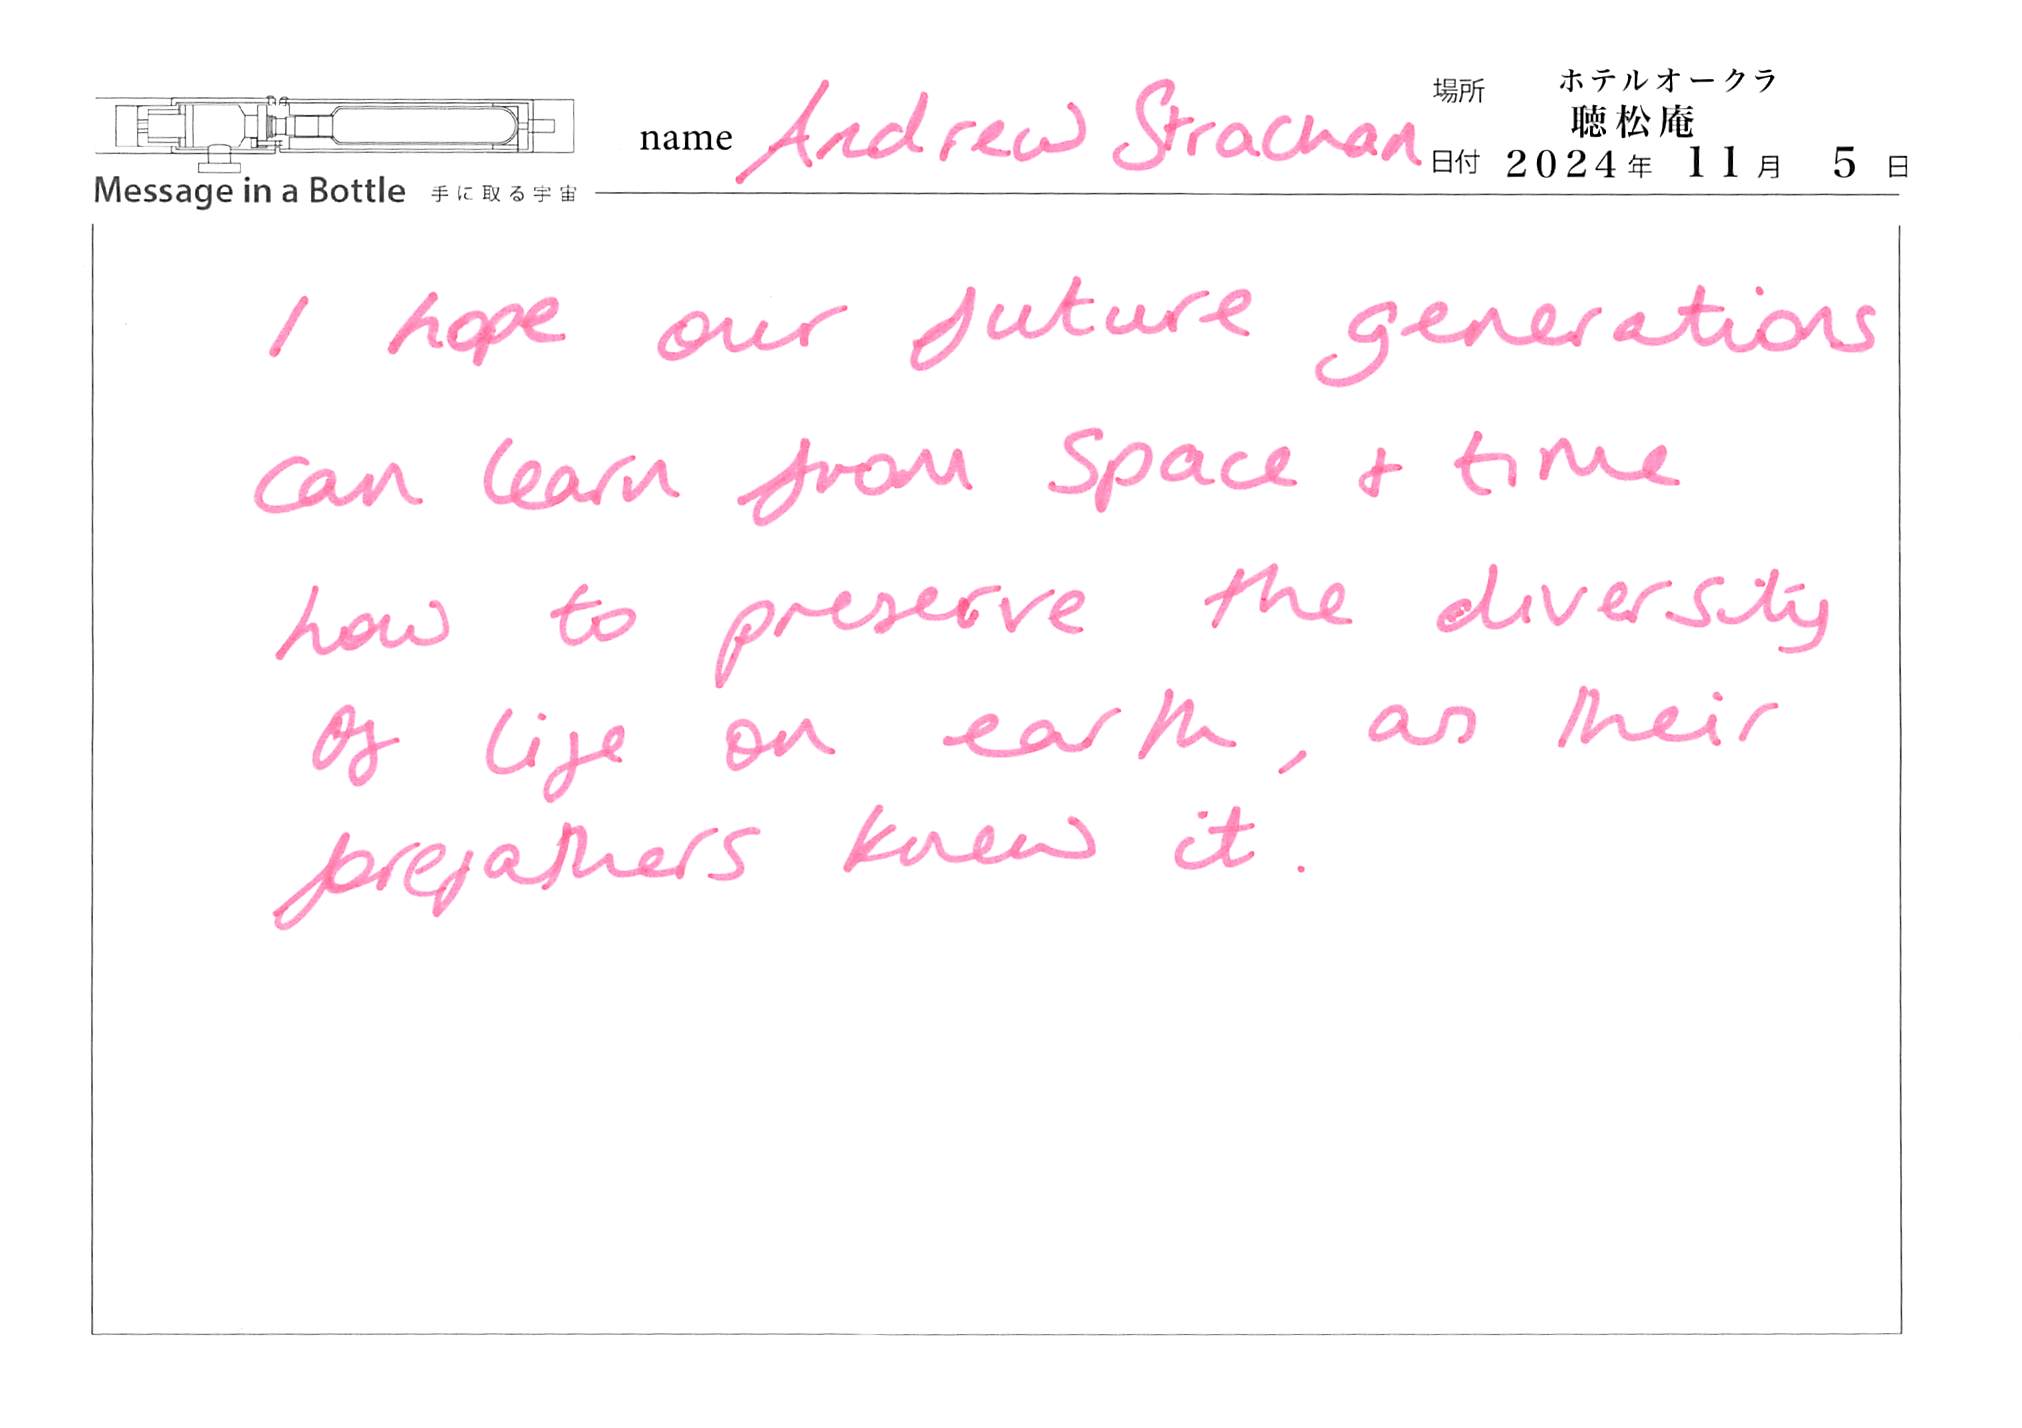 name Andrew Strachan
場所 ホテルオークラ
聴松庵
日付 2024年 11月 5日
Message in a Bottle 手に取る宇宙
I hope our future generations
can learn from Space & time
how to preserve the diversity
of life on earth, as their
forefathers knew it.